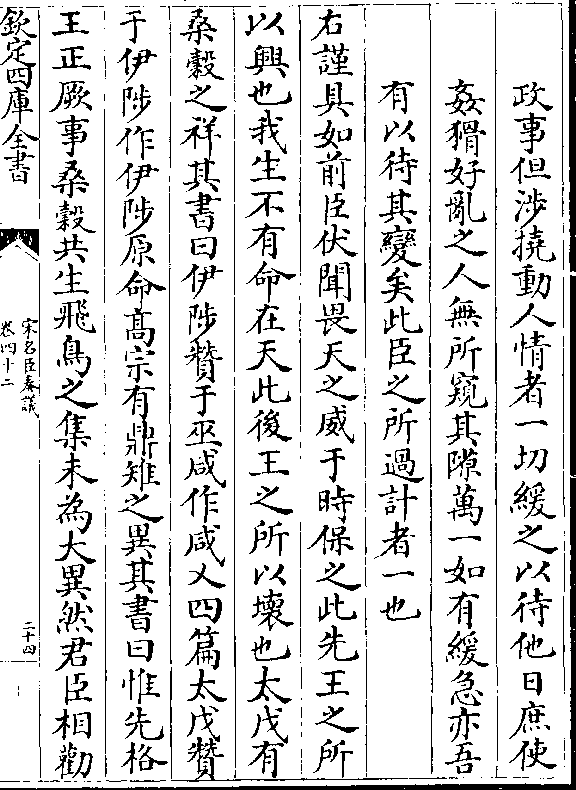 政事但涉撓動人情者一切緩之以待他日庶使
姦猾好亂之人無所窺其隙萬一如有緩急亦吾
有以待其變矣此臣之所過計者一也
右謹具如前臣伏聞畏天之威于時保之此先王之所
以興也我生不有命在天此後王之所以壞也太戊有
桑穀之祥其書曰伊陟贊于巫咸作咸乂四篇太戊贊
于伊陟作伊陟原命髙宗有鼎雉之異其書曰惟先格
王正厥事桑穀共生飛鳥之集未為大異然君臣相勸
欽定四庫全書
宋名臣奏議
卷四十二
二十四